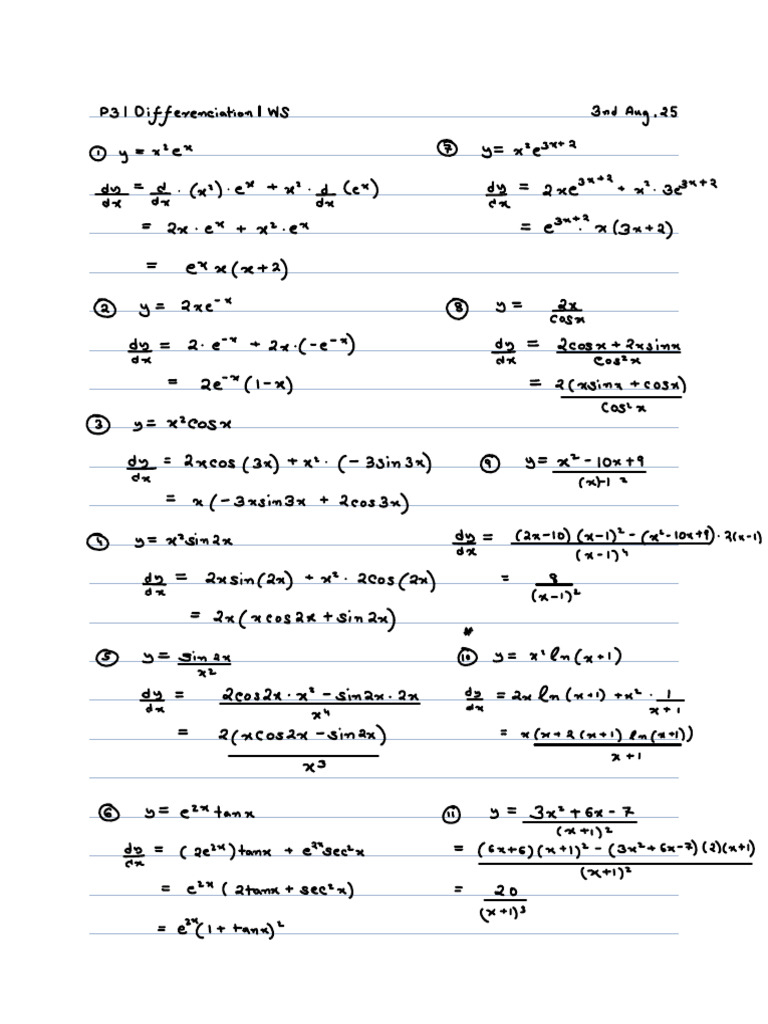 P3 | Differenciation | WS
3nd Aug. 25
① y = x²eˣ
dy/dx = d/dx · (x²) · eˣ + x² · d/dx (eˣ)
= 2x · eˣ + x² · eˣ
= eˣ x (x + 2)
② y = 2xe⁻ˣ
dy/dx = 2 · e⁻ˣ + 2x · (-e⁻ˣ)
= 2e⁻ˣ (1 - x)
③ y = x²cosx
dy/dx = 2xcos(3x) + x² · (-3sin3x)
= x(-3xsin3x + 2cos3x)
④ y = x²sin2x
dy/dx = 2xsin(2x) + x² · 2cos(2x)
= 2x(xcos2x + sin2x)
⑤ y = sin2x / x²
dy/dx = 2cos2x · x² - sin2x · 2x / x⁴
= 2(xcos2x - sin2x) / x³
⑥ y = e²ˣ tanx
dy/dx = (2e²ˣ)tanx + e²ˣsec²x
= e²ˣ (2tanx + sec²x)
= e²ˣ(1 + tanx)²
⑦ y = x²e³ˣ⁺²
dy/dx = 2xe³ˣ⁺² + x² · 3e³ˣ⁺²
= e³ˣ⁺² · x(3x+2)
⑧ y = 2x / cosx
dy/dx = 2cosx + 2xsinx / cos²x
= 2(xsinx + cosx) / cos²x
⑨ y = x² - 10x + 9 / (x)-1 ²
dy/dx = (2x-10)(x-1)² - (x²-10x+9) · 2(x-1) / (x-1)⁴
= 8 / (x-1)²
#
⑩ y = x² ln(x+1)
dy/dx = 2x ln(x+1) + x² · 1 / x+1
= x(x + 2(x+1) ln(x+1)) / x+1
⑪ y = 3x² + 6x - 7 / (x+1)²
= (6x+6)(x+1)² - (3x²+6x-7)(2)(x+1) / (x+1)²
= 20 / (x+1)³